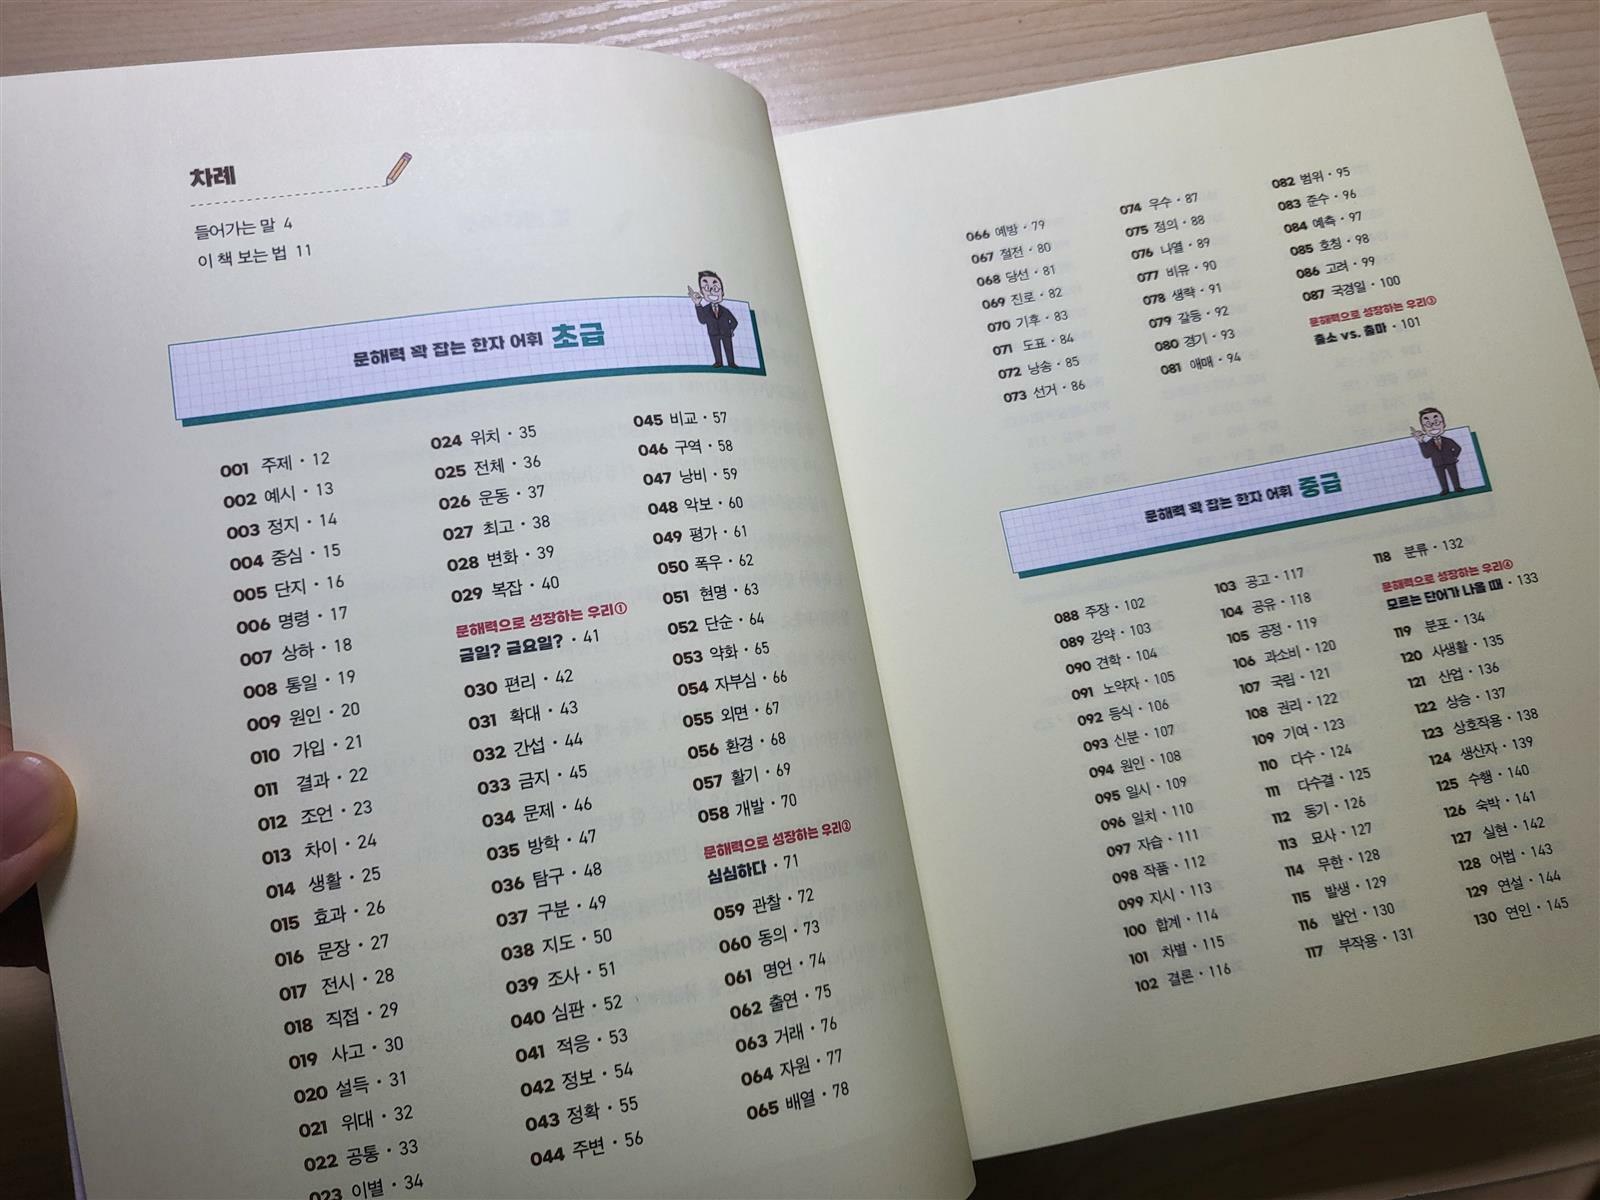 차례
들어가는 말 4
이 책 보는 법 11
문해력 꽉 잡는 한자 어휘 초급
001 주제 · 12
002 예시 · 13
003 정지 · 14
004 중심 · 15
005 단지 · 16
006 명령 · 17
007 상하 · 18
008 통일 · 19
009 원인 · 20
010 가입 · 21
011 결과 · 22
012 조언 · 23
013 차이 · 24
014 생활 · 25
015 효과 · 26
016 문장 · 27
017 전시 · 28
018 직접 · 29
019 사고 · 30
020 설득 · 31
021 위대 · 32
022 공통 · 33
023 이별 · 34
024 위치 · 35
025 전체 · 36
026 운동 · 37
027 최고 · 38
028 변화 · 39
029 복잡 · 40
문해력으로 성장하는 우리①
금일? 금요일? · 41
030 편리 · 42
031 확대 · 43
032 간섭 · 44
033 금지 · 45
034 문제 · 46
035 방학 · 47
036 탐구 · 48
037 구분 · 49
038 지도 · 50
039 조사 · 51
040 심판 · 52
041 적응 · 53
042 정보 · 54
043 정확 · 55
044 주변 · 56
045 비교 · 57
046 구역 · 58
047 낭비 · 59
048 악보 · 60
049 평가 · 61
050 폭우 · 62
051 현명 · 63
052 단순 · 64
053 약화 · 65
054 자부심 · 66
055 외면 · 67
056 환경 · 68
057 활기 · 69
058 개발 · 70
문해력으로 성장하는 우리②
심심하다 · 71
059 관찰 · 72
060 동의 · 73
061 명언 · 74
062 출연 · 75
063 거래 · 76
064 자원 · 77
065 배열 · 78
066 예방 · 79
067 절전 · 80
068 당선 · 81
069 진로 · 82
070 기후 · 83
071 도표 · 84
072 낭송 · 85
073 선거 · 86
074 우수 · 87
075 정의 · 88
076 나열 · 89
077 비유 · 90
078 생략 · 91
079 갈등 · 92
080 경기 · 93
081 애매 · 94
082 범위 · 95
083 준수 · 96
084 예측 · 97
085 호칭 · 98
086 고려 · 99
087 국경일 · 100
문해력으로 성장하는 우리③
출소 vs. 출마 · 101
문해력 꽉 잡는 한자 어휘 중급
088 주장 · 102
089 강약 · 103
090 견학 · 104
091 노약자 · 105
092 등식 · 106
093 신분 · 107
094 원인 · 108
095 일시 · 109
096 일치 · 110
097 자습 · 111
098 작품 · 112
099 지시 · 113
100 합계 · 114
101 차별 · 115
102 결론 · 116
103 공고 · 117
104 공유 · 118
105 공정 · 119
106 과소비 · 120
107 국립 · 121
108 권리 · 122
109 기여 · 123
110 다수 · 124
111 다수결 · 125
112 동기 · 126
113 묘사 · 127
114 무한 · 128
115 발생 · 129
116 발언 · 130
117 부작용 · 131
118 분류 · 132
문해력으로 성장하는 우리④
모르는 단어가 나올 때 · 133
119 분포 · 134
120 사생활 · 135
121 산업 · 136
122 상승 · 137
123 상호작용 · 138
124 생산자 · 139
125 수행 · 140
126 숙박 · 141
127 실현 · 142
128 어법 · 143
129 연설 · 144
130 연인 · 145